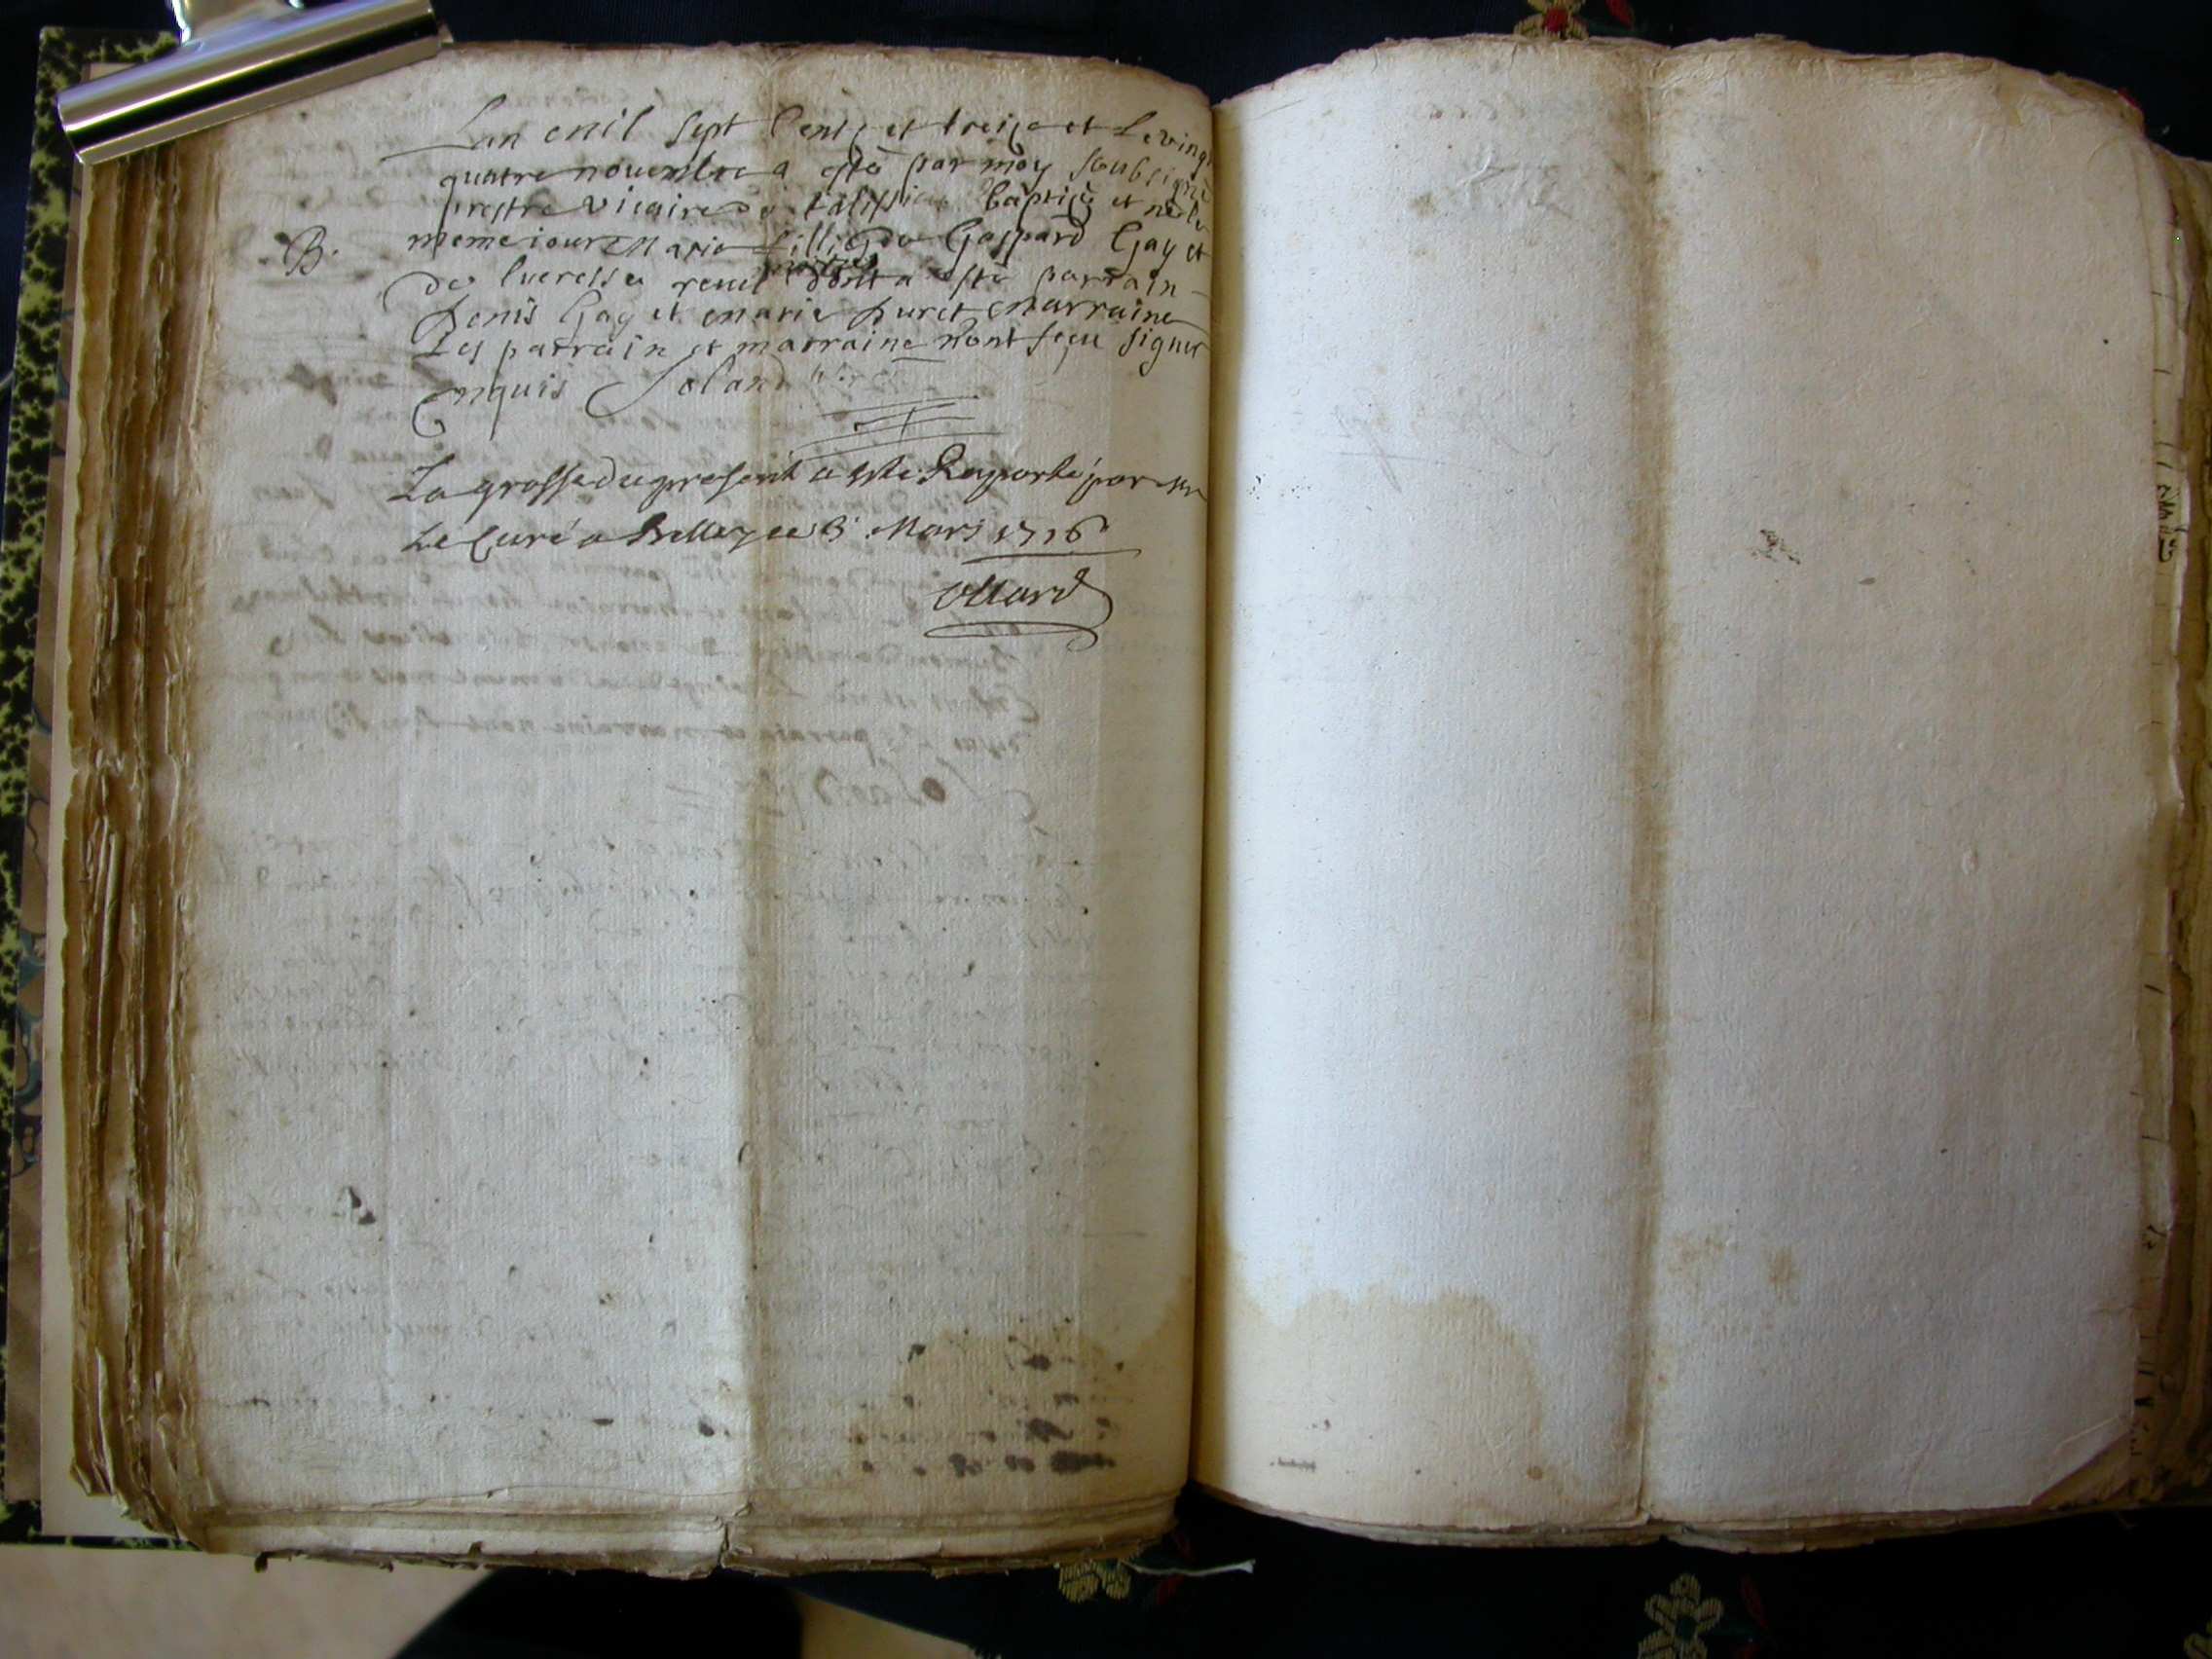 Lan mil sept Cents et treize et le vingt
quatre novembre a esté par moy soubsigné
prestre vicaire de talissieu baptisé et né le
B. meme iour Marie fillie de Gaspard Gay et
de lucresse mariés dont a esté parrain
Denis Gay et marie Buret marraine
Les parrain et marraine nont sçeu signer
Enquis Soland
La grosse du present a esté Raporté par mr
Le Curé a Belley ce 3 Mars 1716